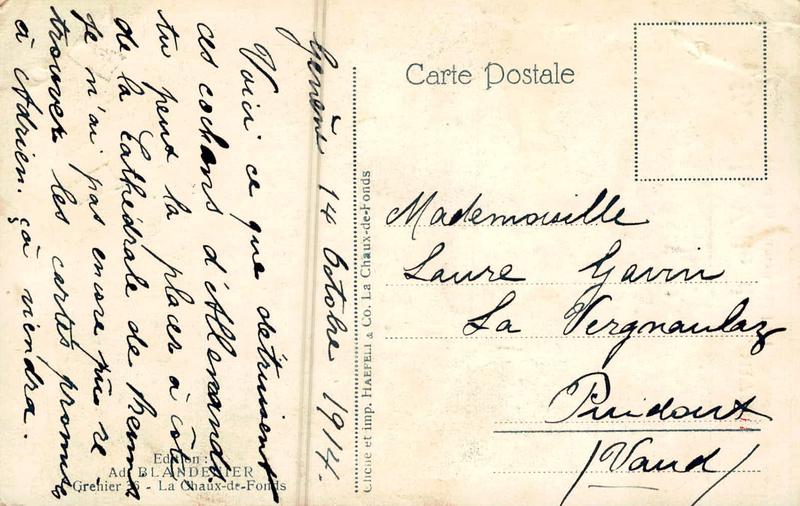 Genève 14 Octobre 1914.
Voici ce que détruisent
ces cochons d'Allemands.
tu peux la placer à côté
de la Cathédrale de Reims
Je n'ai pas encore pu re
trouver les cartes promises
à Adrien. ça viendra.
Edition :
Ad. BLANDENIER
Grenier 36 - La Chaux-de-Fonds
Cliché et Imp. HAEFELI & Co. La Chaux-de-Fonds
Carte Postale
Mademoiselle
Laure Gavin
La Vergnaulaz
Puidoux
(Vaud)